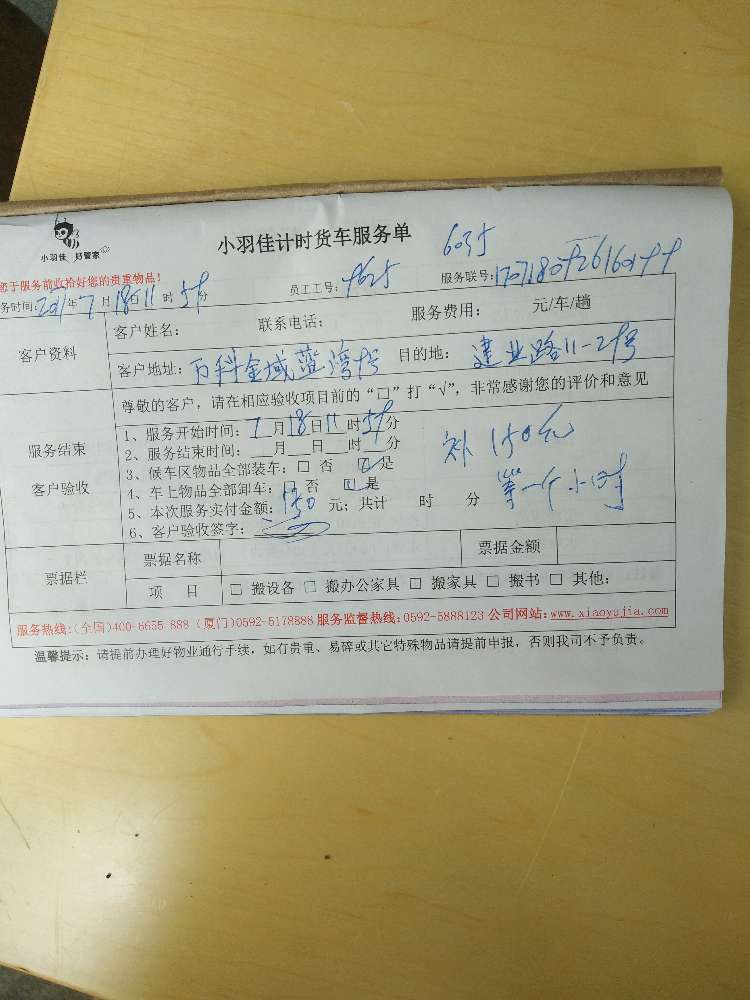 小羽佳 好管家
小羽佳计时货车服务单
6035
您于服务前收拾好您的贵重物品!
务时间:2017年7月18日11时59分 员工工号: 服务联号:
客户资料
客户姓名: 联系电话: 服务费用: 元/车/趟
客户地址:万科金域蓝湾 目的地:建业路11-29号
尊敬的客户，请在相应验收项目前的“□”打“√”，非常感谢您的评价和意见
服务结束
客户验收
1、服务开始时间:7月18日11时59分
2、服务结束时间:__月__日__时__分
3、候车区物品全部装车:□ 否 ☑是
4、车上物品全部卸车:□ 否 ☑是
5、本次服务实付金额:150元;共计 时 分
6、客户验收签字:
补150元
第一个小时
票据栏
票据名称 票据金额
项 目 □ 搬设备 □ 搬办公家具 □ 搬家具 □ 搬书 □ 其他:
服务热线:(全国)400-6655 888 (厦门)0592-5178888 服务监督热线:0592-5888123 公司网站:www.xiaoyujia.com
温馨提示: 请提前办理好物业通行手续，如有贵重、易碎或其它特殊物品请提前申报，否则我司不予负责。